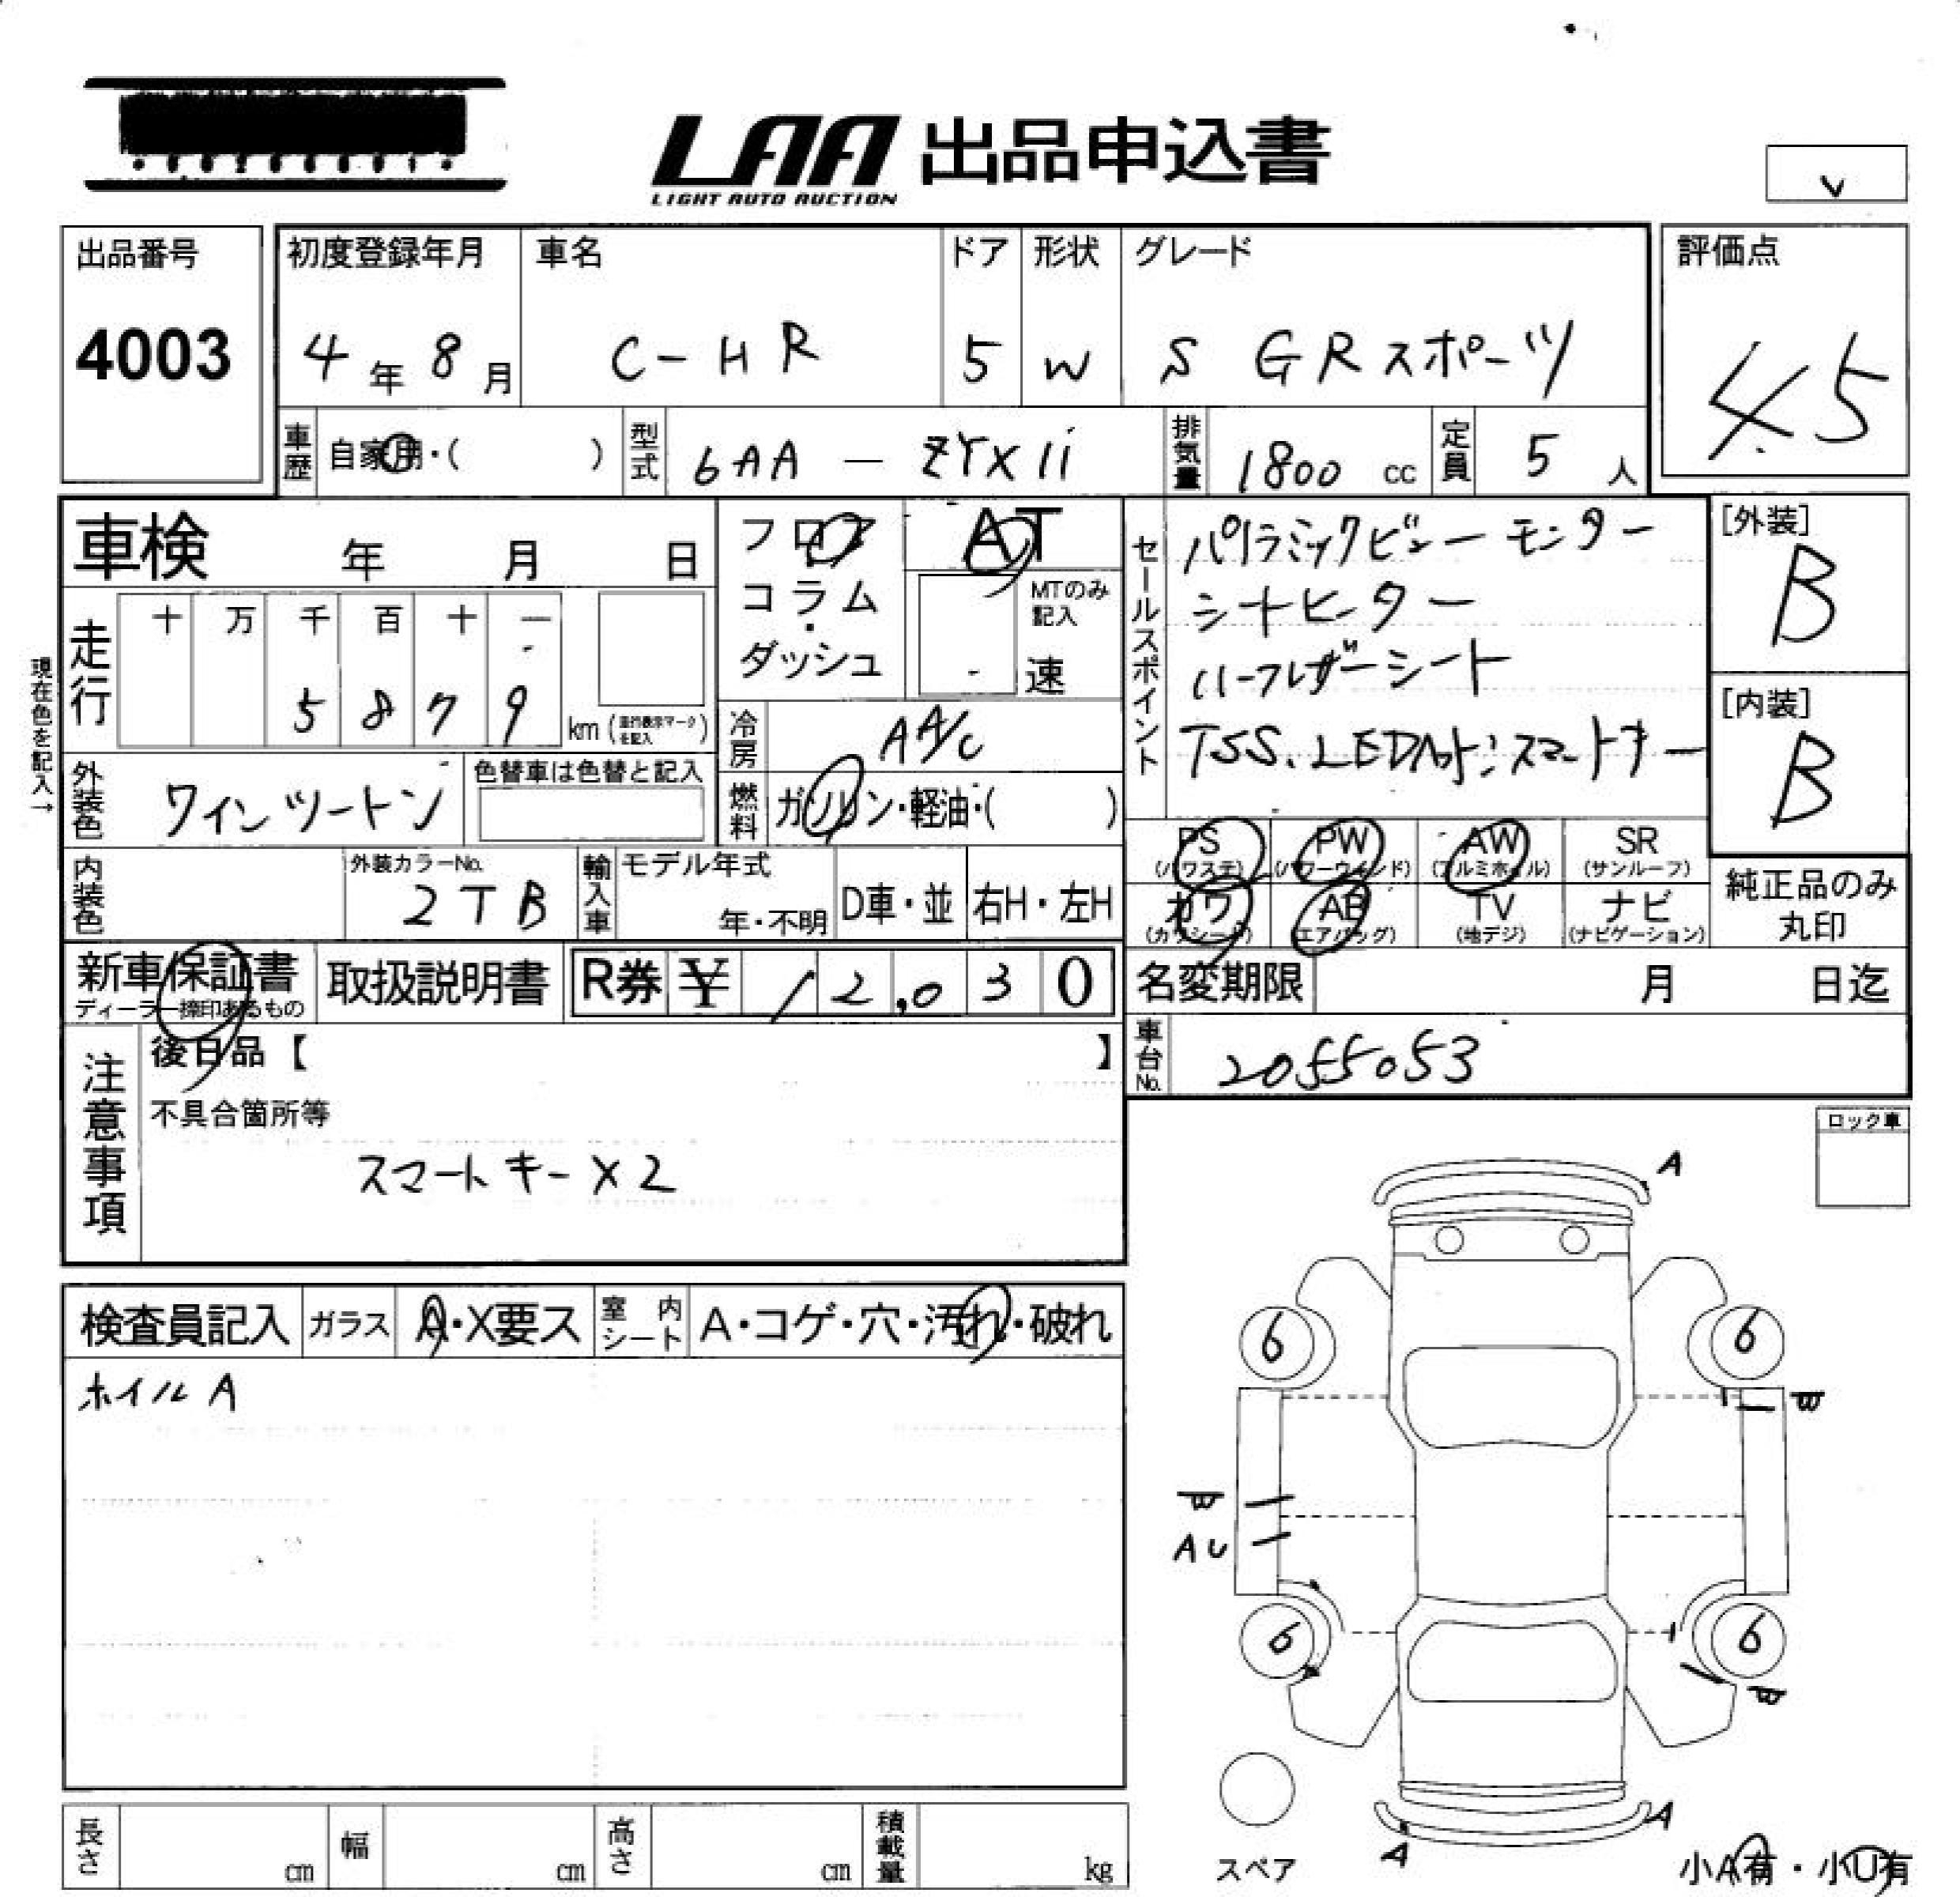 LAA 出品申込書
LIGHT AUTO AUCTION
出品番号
4003
初度登録年月
4年8月
車名
C-HR
ドア
5
形状
W
グレード
S GRスポーツ
評価点
4.5
車歴
自家用・( )
型式
6AA-ZYX11
排気量
1800 cc
定員
5人
車検 年 月 日
走行
十 万 千 百 十 一
5 8 7 9
km (走行表示マークを記入)
現在色を記入→
外装色
ワインツートン
色替車は色替と記入
内装色
外装カラーNo.
2TB
輸入車
モデル年式
年・不明
D車・並
右H・左H
フロア
コラム
・
ダッシュ
AT
MTのみ記入
速
冷房
AA/C
燃料
ガソリン・軽油・( )
セールスポイント
パノラミックビューモニター
シートヒーター
ハーフレザーシート
TSS、LEDヘッド、スマートキー
[外装]
B
[内装]
B
PS
(パワステ)
PW
(パワーウィンド)
AW
(アルミホイル)
SR
(サンルーフ)
カワ
(カワシート)
AB
(エアバッグ)
TV
(地デジ)
ナビ
(ナビゲーション)
純正品のみ
丸印
新車保証書
ディーラー捺印あるもの
取扱説明書
R券 ¥ 12,030
名変期限 月 日迄
車台No.
2055053
注意事項
後日品【 】
不具合箇所等
スマートキー×2
ロック車
検査員記入
ガラス
A・X要ス
室内シート
A・コゲ・穴・汚れ・破れ
ホイルA
A
6
6
W
W
AU
6
6
W
A
A
スペア
小A有・小U有
長さ cm
幅 cm
高さ cm
積載量 kg